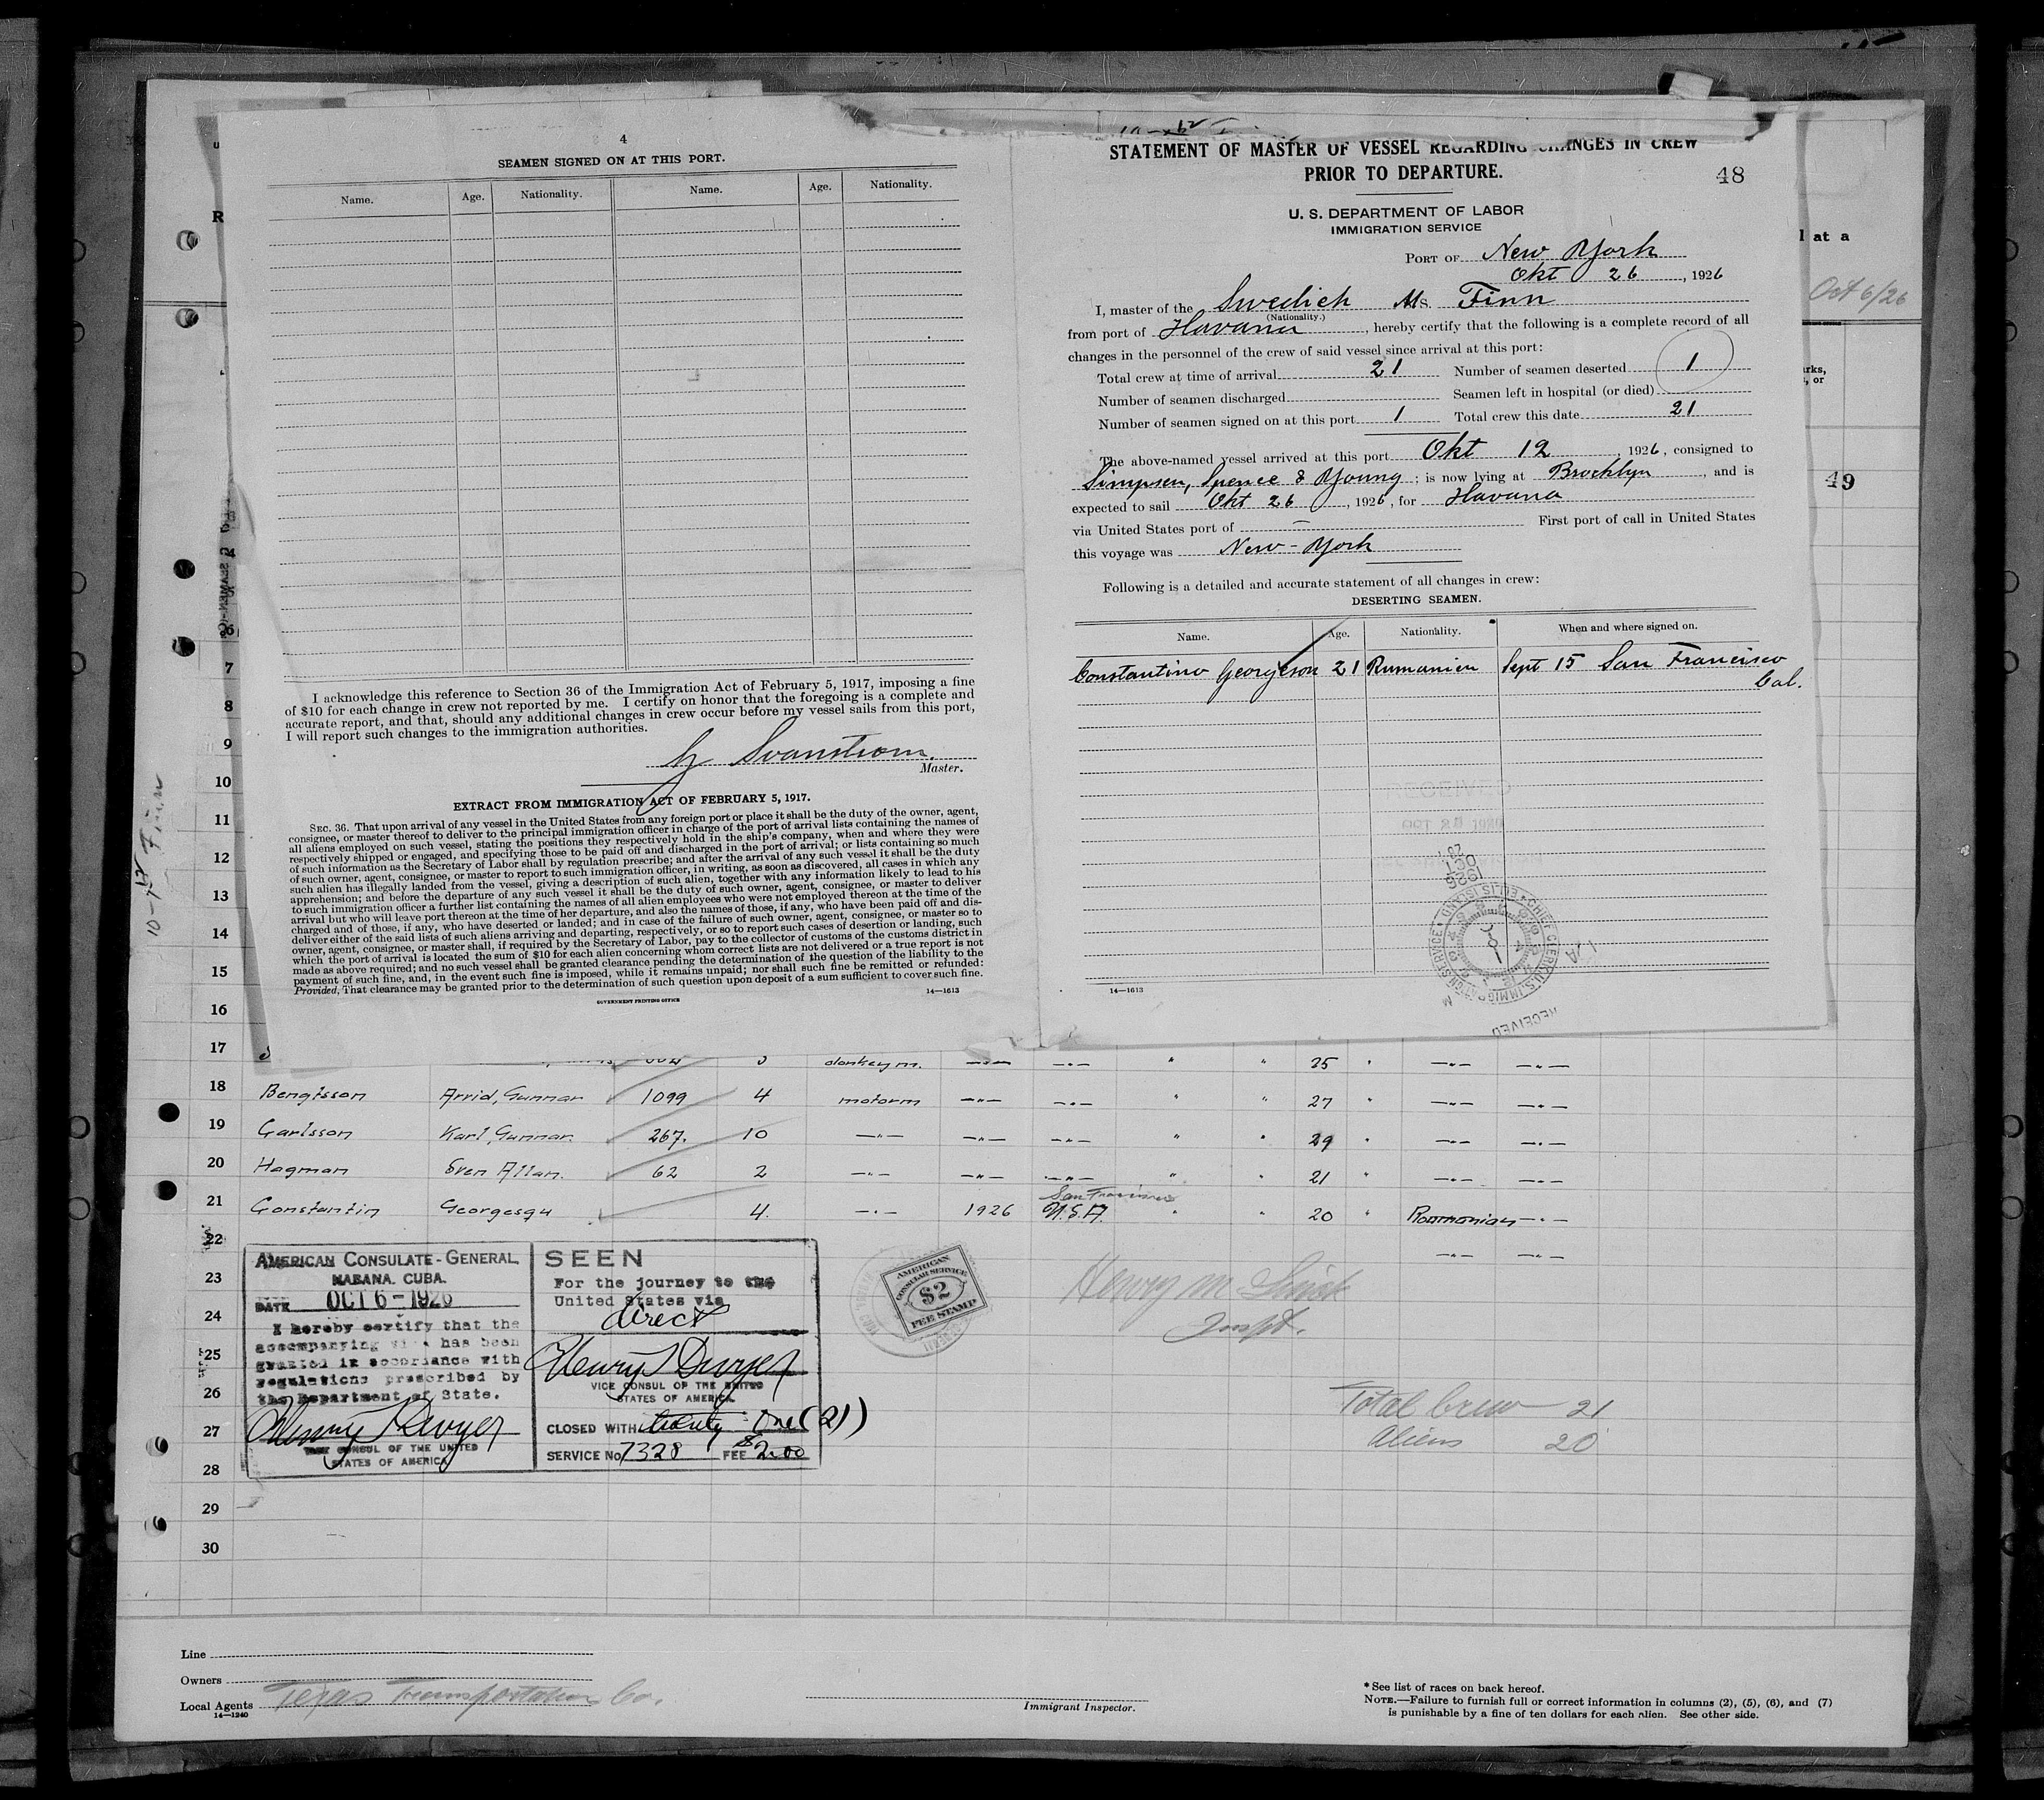 4
SEAMEN SIGNED ON AT THIS PORT.
Name. Age. Nationality. Name. Age. Nationality.
I acknowledge this reference to Section 36 of the Immigration Act of February 5, 1917, imposing a fine
of $10 for each change in crew not reported by me. I certify on honor that the foregoing is a complete and
accurate report, and that, should any additional changes in crew occur before my vessel sails from this port,
I will report such changes to the immigration authorities.
Svanstrom
Master.
EXTRACT FROM IMMIGRATION ACT OF FEBRUARY 5, 1917.
SEC. 36. That upon arrival of any vessel in the United States from any foreign port or place it shall be the duty of the owner, agent,
consignee, or master thereof to deliver to the principal immigration officer in charge of the port of arrival lists containing the names of
all aliens employed on such vessel, stating the positions they respectively hold in the ship's company, when and where they were
respectively shipped or engaged, and specifying those to be paid off and discharged in the port of arrival; or lists containing so much
of such information as the Secretary of Labor shall by regulation prescribe; and after the arrival of any such vessel it shall be the duty
of such owner, agent, consignee, or master to report to such immigration officer, in writing, as soon as discovered, all cases in which any
such alien has illegally landed from the vessel, giving a description of such alien, together with any information likely to lead to his
apprehension; and before the departure of any such vessel it shall be the duty of such owner, agent, consignee, or master to deliver
to such immigration officer a further list containing the names of all alien employees who were not employed thereon at the time of the
arrival but who will leave port thereon at the time of her departure, and also the names of those, if any, who have been paid off and dis-
charged and of those, if any, who have deserted or landed; and in case of the failure of such owner, agent, consignee, or master so to
deliver either of the said lists of such aliens arriving and departing, respectively, or so to report such cases of desertion or landing, such
owner, agent, consignee, or master shall, if required by the Secretary of Labor, pay to the collector of customs of the customs district in
which the port of arrival is located the sum of $10 for each alien concerning whom correct lists are not delivered or a true report is not
made as above required; and no such vessel shall be granted clearance pending the determination of the question of the liability to the
payment of such fine, and, in the event such fine is imposed, while it remains unpaid; nor shall such fine be remitted or refunded:
Provided, That clearance may be granted prior to the determination of such question upon deposit of a sum sufficient to cover such fine.
14—1613
GOVERNMENT PRINTING OFFICE
STATEMENT OF MASTER OF VESSEL REGARDING CHANGES IN CREW
PRIOR TO DEPARTURE.
48
U. S. DEPARTMENT OF LABOR
IMMIGRATION SERVICE
PORT OF New York
Okt 26, 1926
I, master of the Swedish Ms. Finn
(Nationality.)
from port of Havana, hereby certify that the following is a complete record of all
changes in the personnel of the crew of said vessel since arrival at this port:
Total crew at time of arrival 21 Number of seamen deserted 1
Number of seamen discharged Seamen left in hospital (or died)
Number of seamen signed on at this port 1 Total crew this date 21
The above-named vessel arrived at this port Okt 12, 1926, consigned to
Simpson, Spence & Young; is now lying at Brooklyn, and is
expected to sail Okt 26, 1926, for Havana
via United States port of — First port of call in United States
this voyage was New-York
Following is a detailed and accurate statement of all changes in crew:
DESERTING SEAMEN.
Name. Age. Nationality. When and where signed on.
Constantino Georgeson 21 Rumanien Sept 15 San Francisco
Cal.
RECEIVED
OCT 1926
CHIEF CLERK U.S. IMMIGRATION SERVICE ELLIS ISLAND
RECEIVED
14—1613
l at a
Oct 6/26
49
10-12 Finn
7
8
9
10
11
12
13
14
15
16
17 donkeym. 25
18 Bengtsson Arvid, Gunnar 1099 4 motorm 27
19 Carlsson Karl, Gunnar 267. 10 29
20 Hagman Sven Allan. 62 2 21
San Francisco
21 Constantin Georgesqu 4. 1926 U.S.A. 20 Roumanian
22
23
24
25
26
27
28
29
30
AMERICAN CONSULATE-GENERAL
HABANA. CUBA.
DATE OCT 6-1926
I hereby certify that the
accompanying visa has been
granted in accordance with
regulations prescribed by
the Department of State.
Henry Dwyer
VICE CONSUL OF THE UNITED
STATES OF AMERICA
SEEN
For the journey to the
United States via
direct
Henry Dwyer
VICE CONSUL OF THE UNITED
STATES OF AMERICA
CLOSED WITH twenty One (21)
SERVICE No 7328 FEE $2.00
AMERICAN
CONSULAR SERVICE
$2
FEE STAMP
Henry M
Inspt.
Total Crew 21
Aliens 20
Line
Owners
Local Agents Texas Transportation Co.
14—1240
Immigrant Inspector.
* See list of races on back hereof.
NOTE.—Failure to furnish full or correct information in columns (2), (5), (6), and (7)
is punishable by a fine of ten dollars for each alien. See other side.